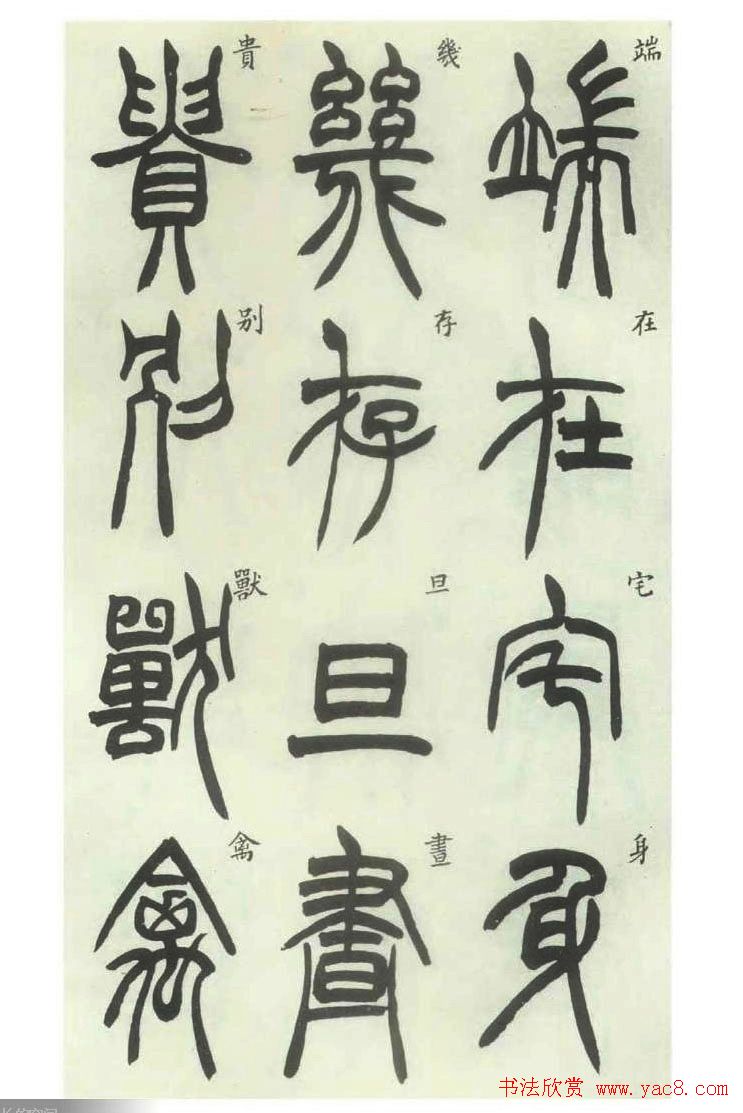 端在宅身
幾存旦晝
貴别獸禽
书法欣赏 www.yac8.com